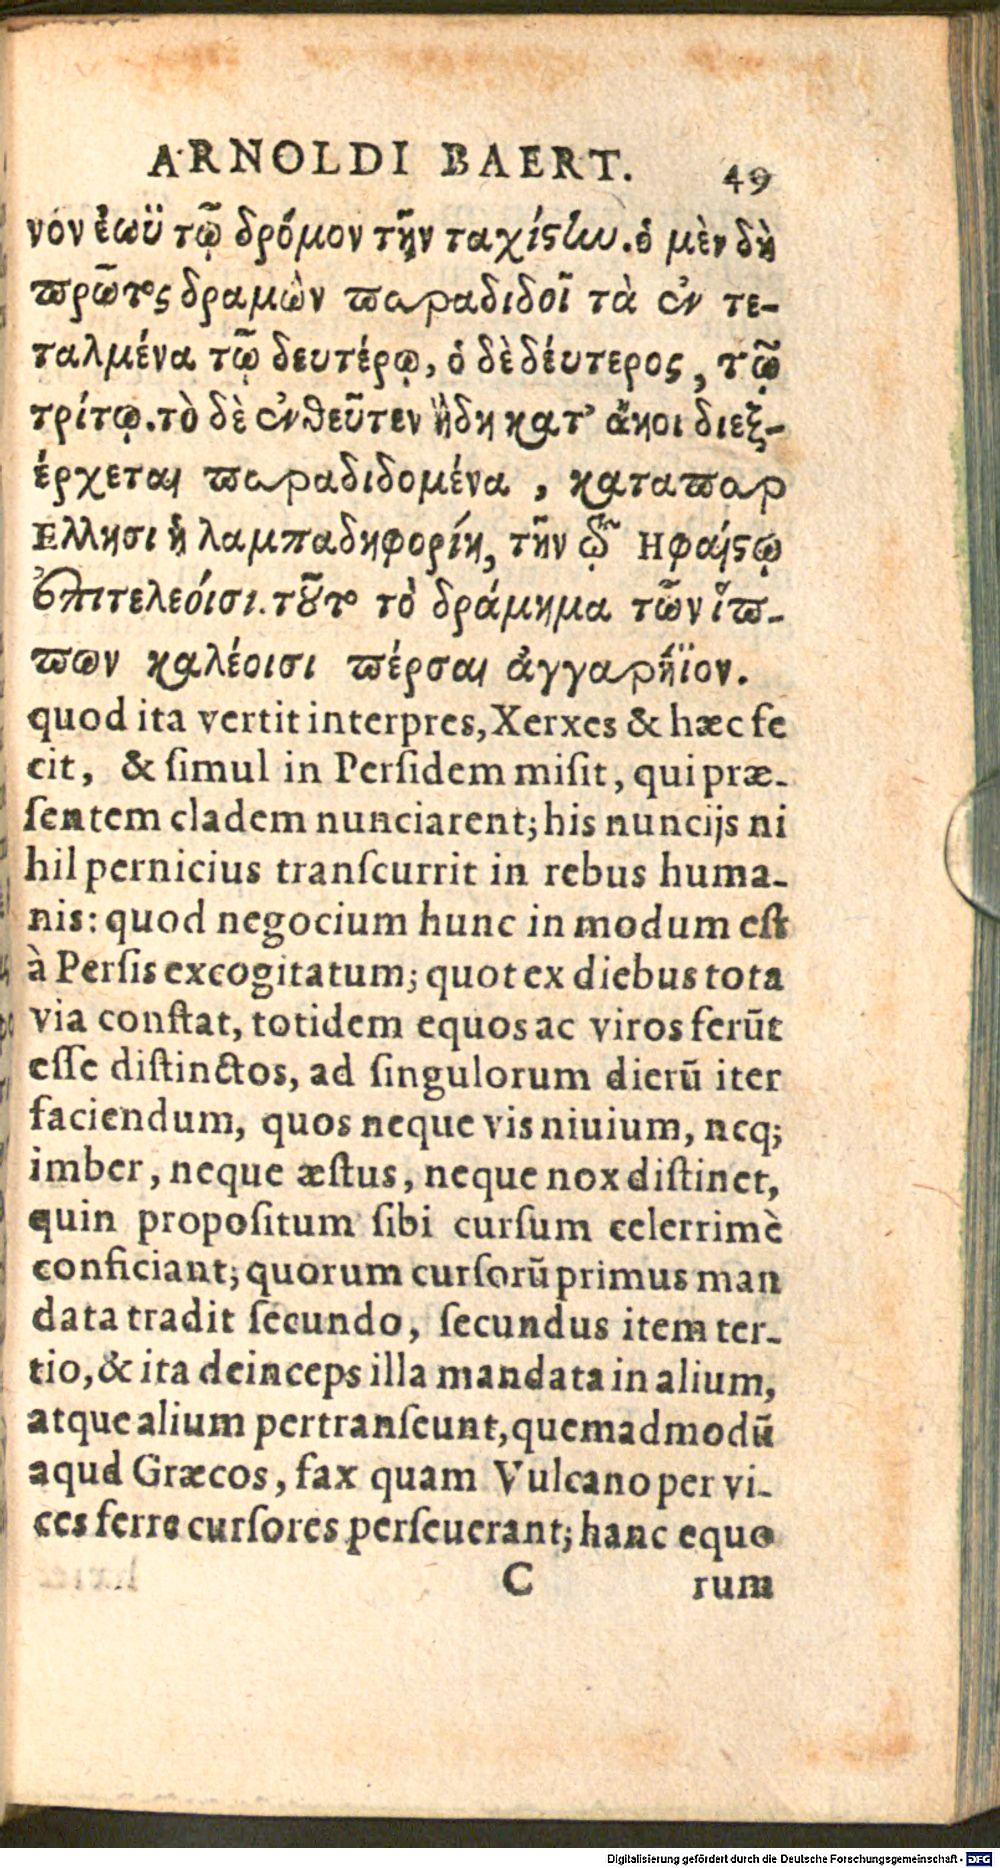 ARNOLDI BAERT. 49
νόν ἑωϋ τῷ δρόμον τὴν ταχίςην. ὁ μὲν δὴ
πρῶτος δραμὼν παραδιδοῖ τὰ ἐν τε-
ταλμένα τῷ δευτέρῳ, ὁ δὲ δέυτερος, τῷ
τρίτῳ. τὸ δὲ ἐνθεῦτεν ἤδη κατ' ἄκοι διεξ-
έρχεται παραδιδομένα, καταπαρ
Ελλησι ἡ λαμπαδηφορίη, τῆν ᾧ Ηφαίςῳ
ἐπιτελεόισι. τοῦτο τὸ δράμημα τῶν ἵπ-
πων καλέοισι πέρσαι ἀγγαρήϊον.
quod ita vertit interpres, Xerxes & hæc fe
cit, & ſimul in Perſidem miſit, qui præ-
ſentem cladem nunciarent; his nuncijs ni
hil pernicius tranſcurrit in rebus huma-
nis: quod negocium hunc in modum eſt
à Perſis excogitatum; quot ex diebus tota
via conſtat, totidem equos ac viros ferūt
eſſe diſtinctos, ad ſingulorum dierū iter
faciendum, quos neque vis niuium, neq;
imber, neque æſtus, neque nox diſtinet,
quin propoſitum ſibi curſum celerrimè
conficiant; quorum curſorū primus man
data tradit ſecundo, ſecundus item ter-
tio, & ita deinceps illa mandata in alium,
atque alium pertranſeunt, quemadmodū
aqud Græcos, fax quam Vulcano per vi-
ces ferre curſores perſeuerant; hanc equo
C rum
Digitalisierung gefördert durch die Deutsche Forschungsgemeinschaft - DFG